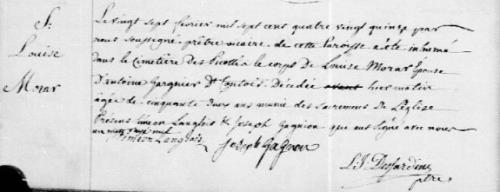 S.
Louise
Morar
Le vingt sept fevrier mil sept cent quatre vingt quinze par
nous soussigné prêtre vicaire de cette Paroisse a été inhumé
dans le Cimetière des le corps de Louise Morar Epouse
d'antoine Gargnier Dt Contois. Décédée avant hier matin
agée de cinquante deux ans munie des Sacremens de L'Eglise
Presens Simeon Langlois & Joseph Gagnion qui ont signé avec nous
un mot rayé nul
simeon Langlois Joseph Gagnon
L.S. Desjardins
ptre.